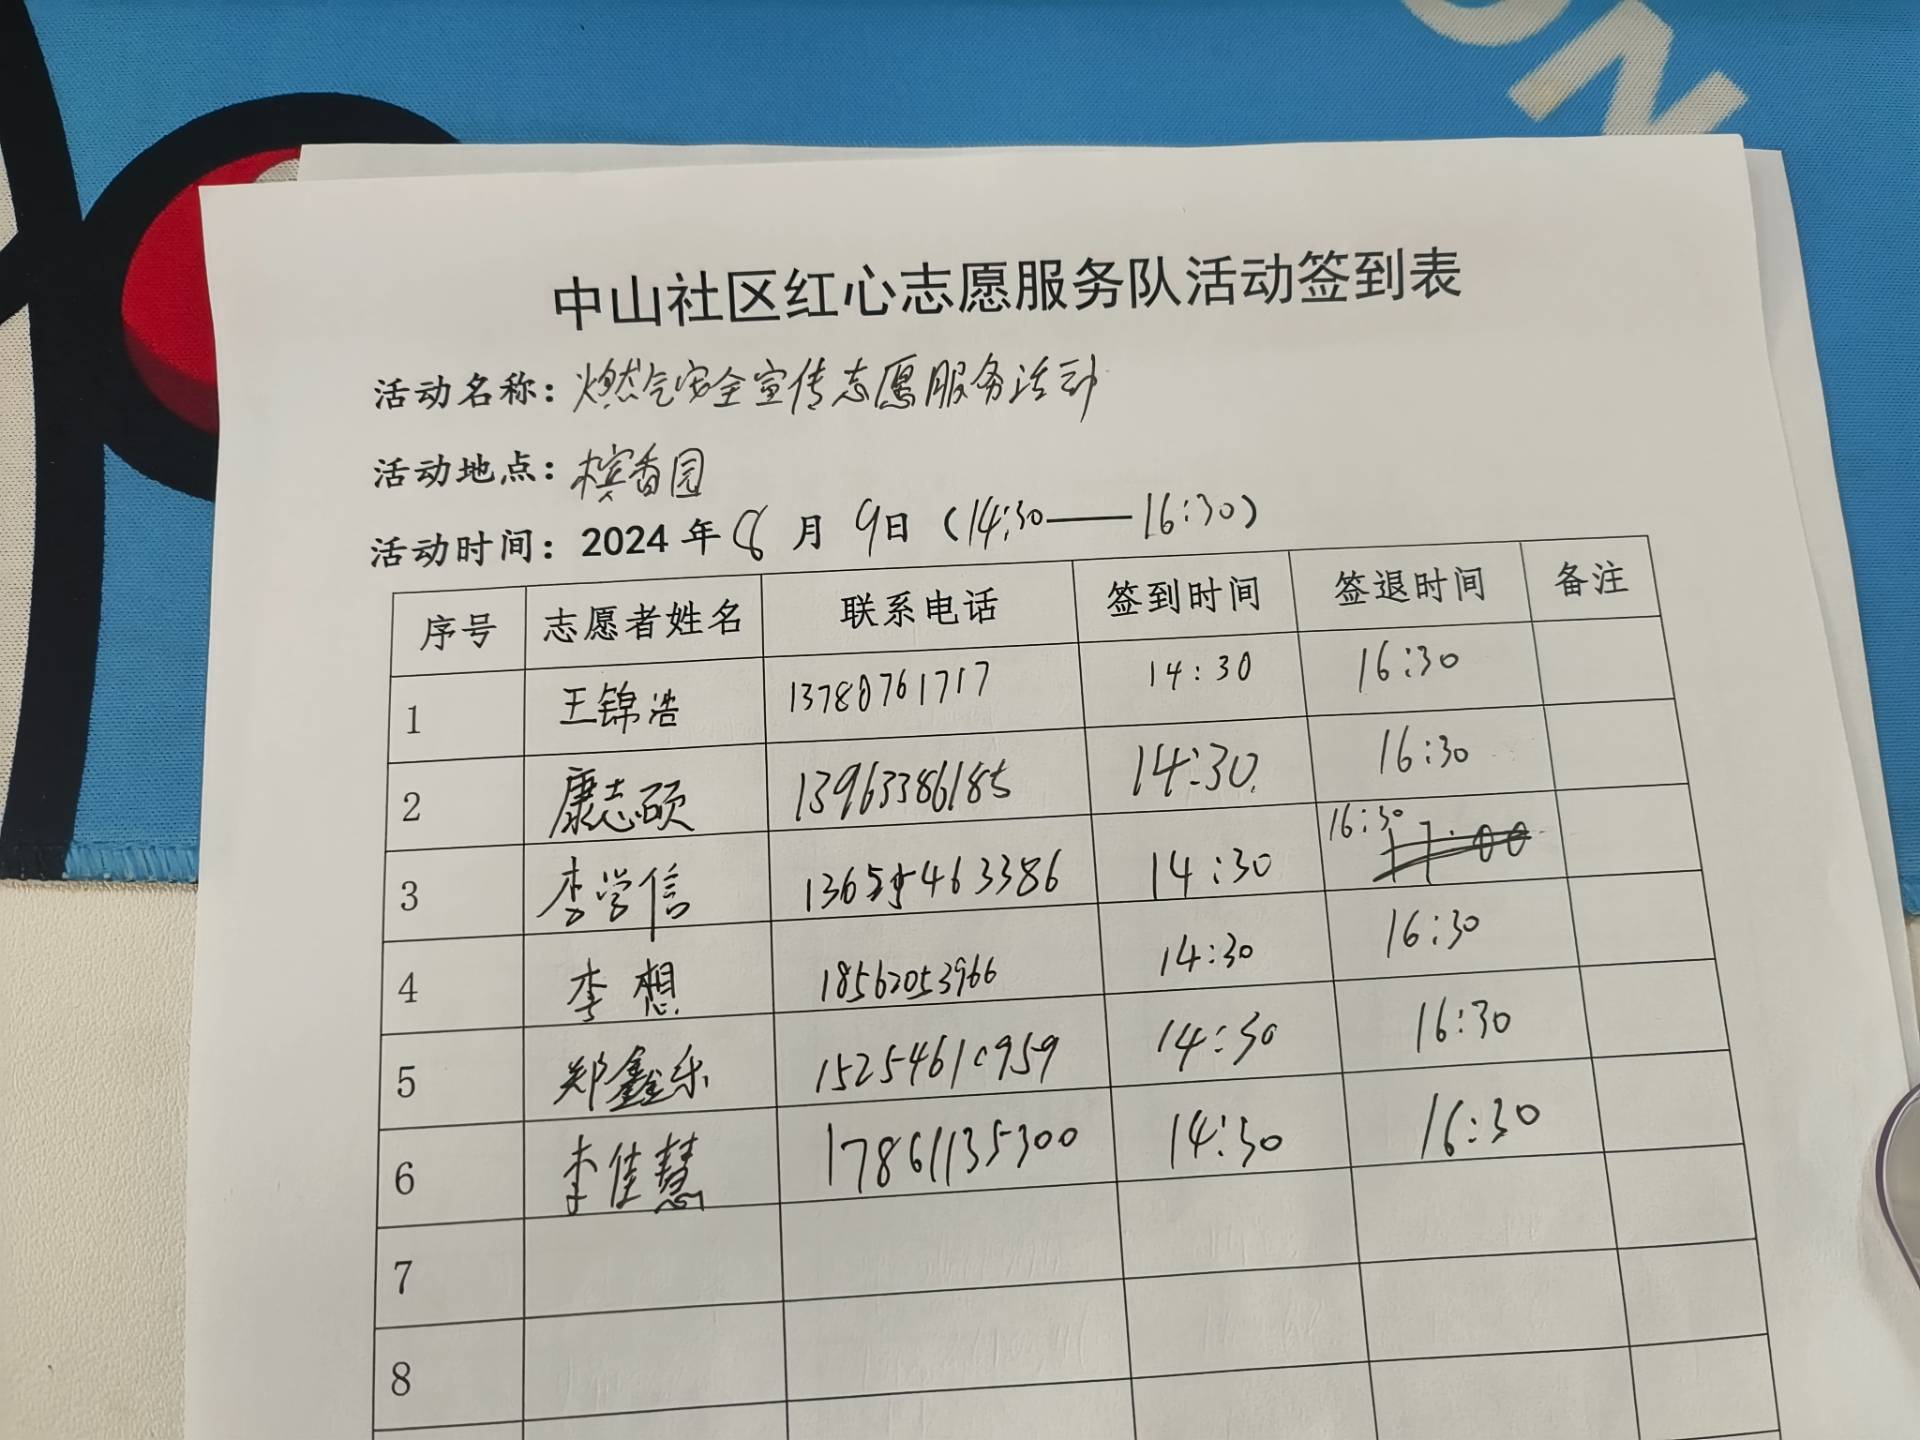 ON
中山社区红心志愿服务队活动签到表
活动名称：燃气安全宣传志愿服务活动
活动地点：槟香园
活动时间：2024年8月9日（14:30——16:30）
序号 志愿者姓名 联系电话 签到时间 签退时间 备注
1 王锦浩 13780761717 14:30 16:30
2 康志硕 13963386185 14:30 16:30
3 李学信 14:30 16:30 17:00
4 李想 18562053966 14:30 16:30
5 郑鑫乐 15254610959 14:30 16:30
6 李佳慧 17861135300 14:30 16:30
7
8